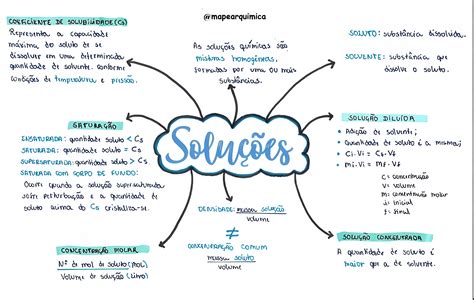 @mapearquimica
COEFICIENTE DE SOLUBILIDADE (Cs)
Representa a capacidade
máxima do soluto de se
dissolver em uma determinada
quantidade de solvente. conforme
condições de temperatura e pressão.
As soluções químicas são
misturas homogêneas,
formadas por uma ou mais
substâncias.
SOLUTO: substância dissolvida.
SOLVENTE: substância que
dissolve o soluto.
SATURAÇÃO
INSATURADA: quantidade soluto < Cs
SATURADA: quantidade soluto = Cs
SUPERSATURADA: quantidade soluto > Cs
SATURADA COM CORPO DE FUNDO:
Ocorre quando a solução supersaturada
sofre perturbação e a quantidade de
soluto acima do Cs cristaliza-se.
Soluções
SOLUÇÃO DILUÍDA
• Adição de solvente;
• Quantidade de soluto é a mesma;
• Ci.Vi = Cf.Vf
• mi.Vi = Mf.Vf
C = concentração
V = volume
M = concentração molar
i = inicial
f = final
CONCENTRAÇÃO MOLAR
Nº de mol do soluto (mol)
Volume da solução (litro)
DENSIDADE: massa solução
volume
≠
CONCENTRAÇÃO COMUM
massa soluto
volume
SOLUÇÃO CONCENTRADA
A quantidade de soluto é
maior que a de solvente.